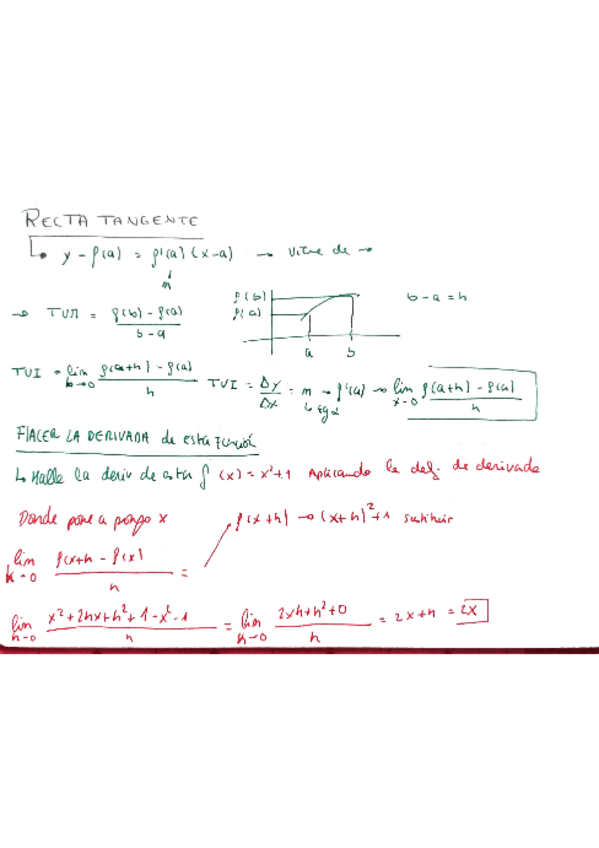 RECTA TANGENTE
↳ y - f(a) = f'(a) (x-a) → viene de →
m
→ TVM = f(b) - f(a) / b-a
f(b)
f(a)
a b
b-a = h
TVI = lim h→0 f(a+h) - f(a) / h TVI = Δy / Δx = m → f'(a) → lim x→0 f(a+h) - f(a) / h
↳ tg α
HACER LA DERIVADA de esta Función
↳ Halle la deriv de esta f (x) = x²+1 Aplicando la def. de derivada
Donde pone a pongo x f(x+h) → (x+h)²+1 sustituir
lim h→0 f(x+h - f(x) / h =
lim h→0 x²+2hx+h²+1-x²-1 / h = lim h→0 2xh+h²+0 / h = 2x+h = 2x